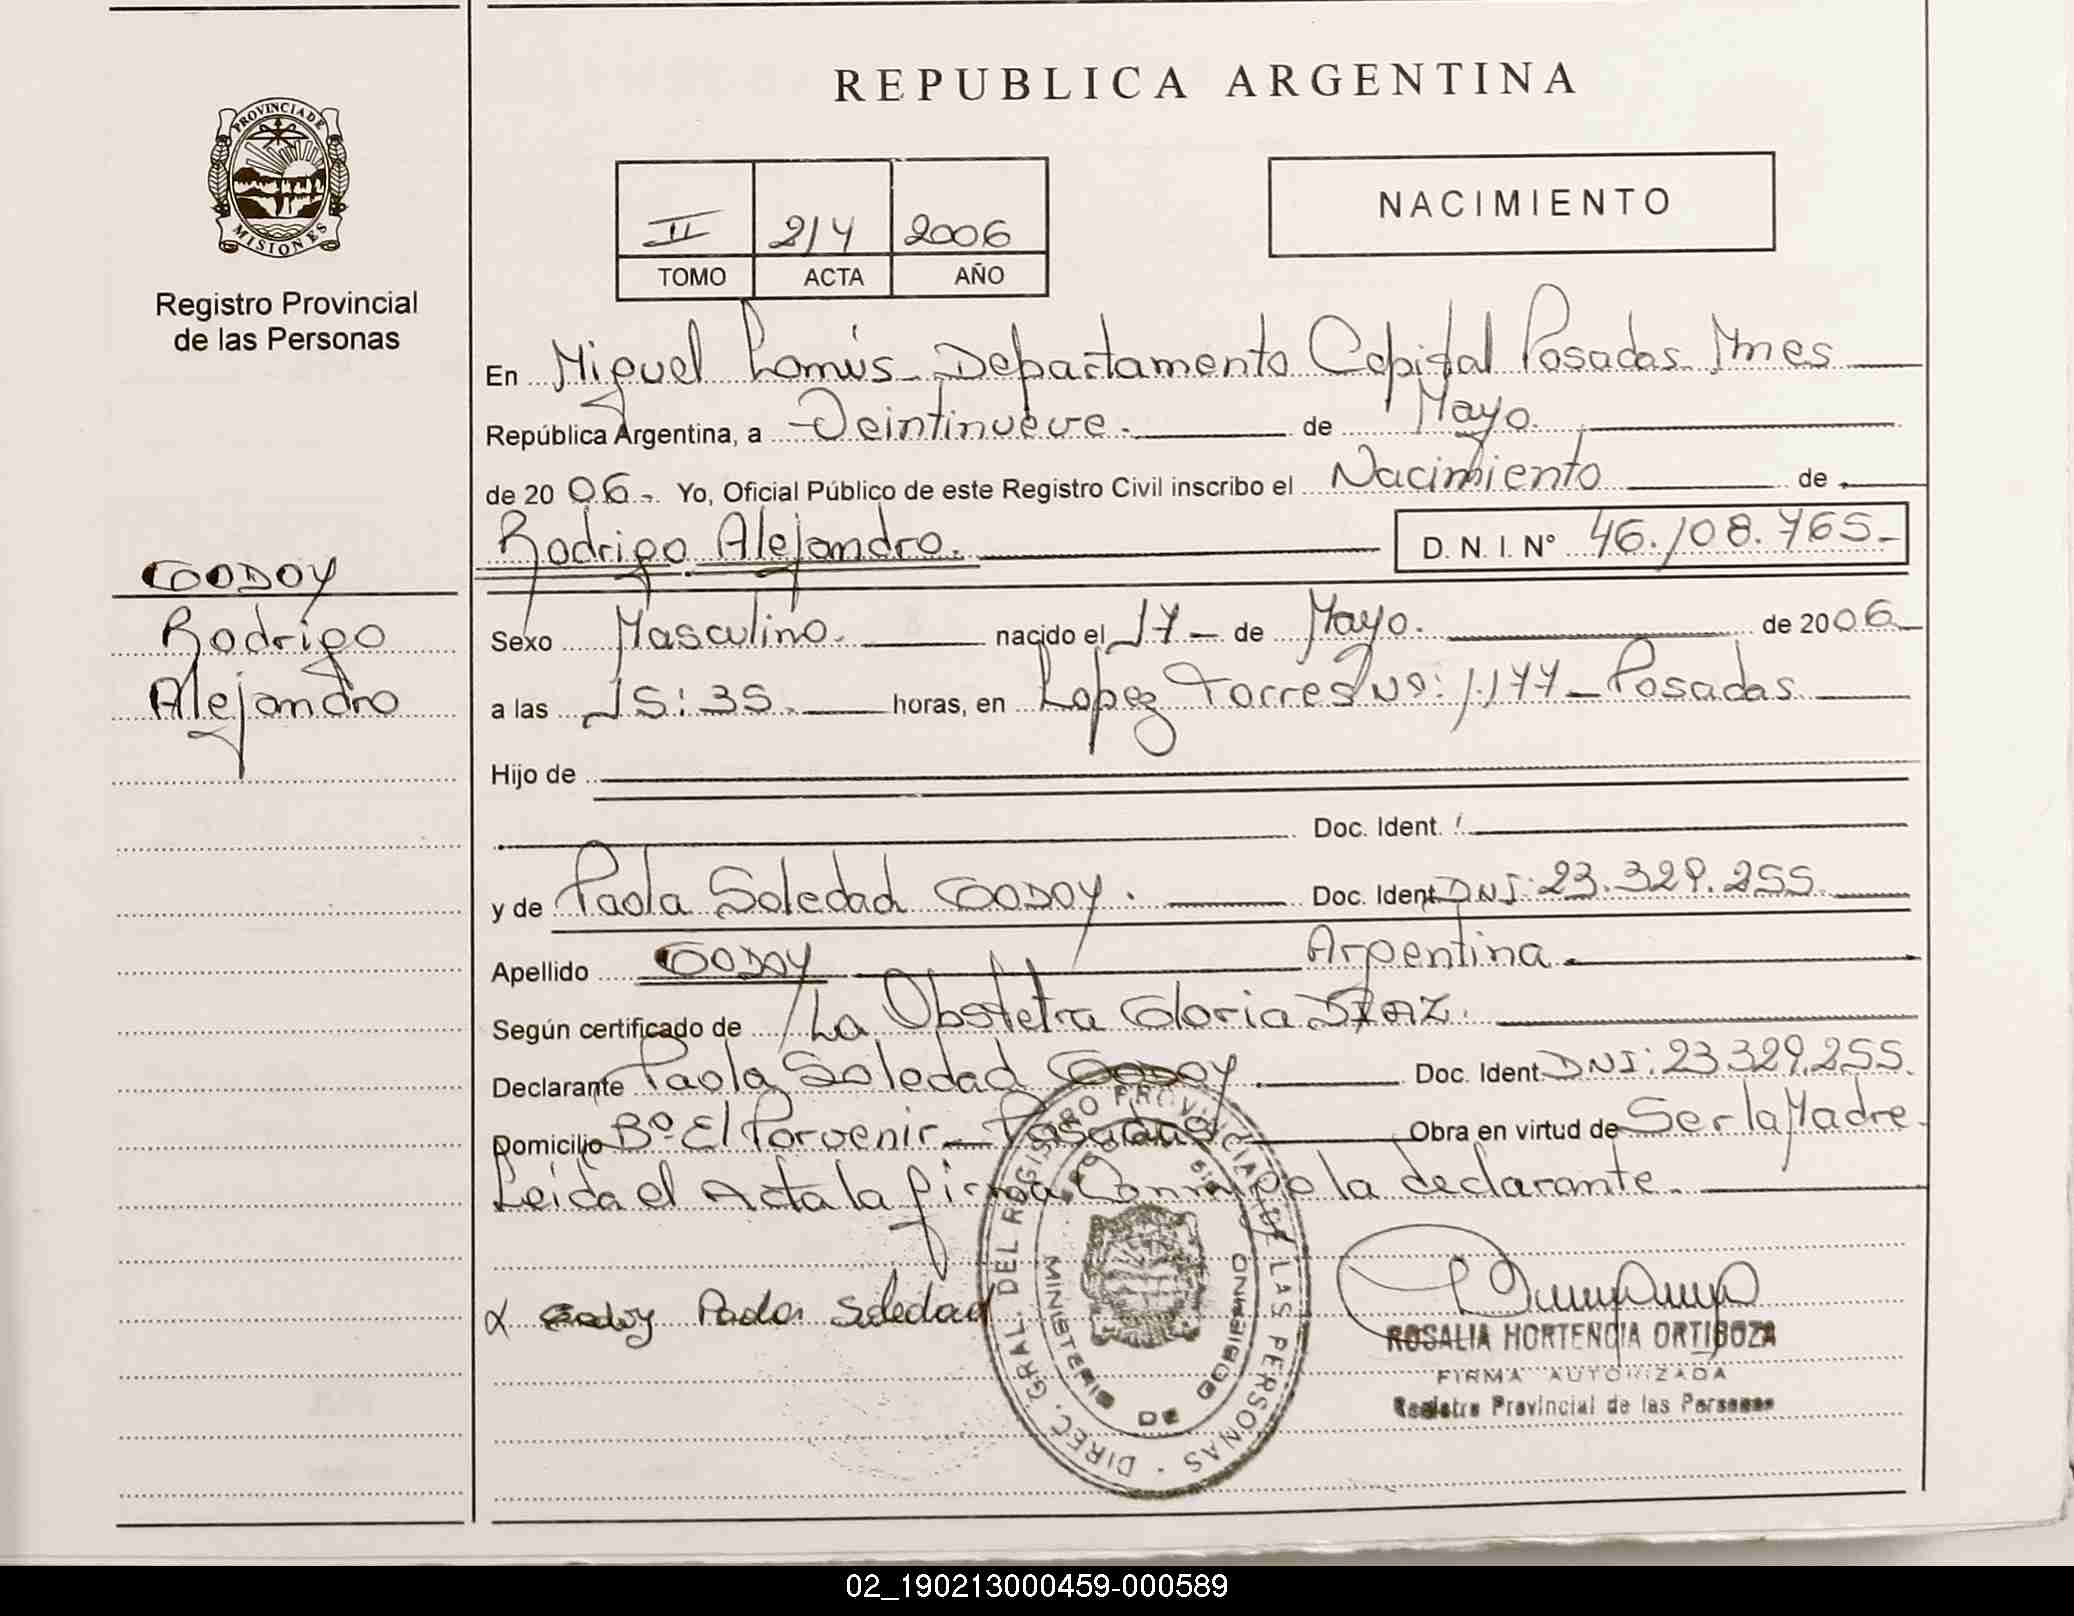 REPUBLICA ARGENTINA
PROVINCIA DE
MISIONES
Registro Provincial
de las Personas
NACIMIENTO
II 214 2006
TOMO ACTA AÑO
En Miguel Lanús - Departamento Capital Posadas Mnes
República Argentina, a Veintinueve. de Mayo.
de 2006.- Yo, Oficial Público de este Registro Civil inscribo el Nacimiento de
Rodrigo Alejandro. D. N. I. N° 46.108.765.-
GODOY
Rodrigo
Alejandro
Sexo Masculino. nacido el 17 - de Mayo. de 2006
a las 15:35. horas, en Lopez Torres Nº: 1.177 - Posadas
Hijo de
Doc. Ident.
y de Paola Soledad GODOY. Doc. Ident DNI: 23.329.255
Apellido GODOY Argentina.
Según certificado de La Obstetra Gloria DIAZ.
Declarante Paola Soledad Godoy Doc. Ident. DNI: 23.329.255.
Domicilio Bº El Porvenir - Posadas Obra en virtud de Ser la Madre.
Leida el Acta la firma Conmigo la declarante.
Godoy Paola Soledad
DIREC. GRAL. DEL REGISTRO PROVINCIAL DE LAS PERSONAS
MINISTERIO DE GOBIERNO
ROSALIA HORTENCIA ORTIBOZA
FIRMA AUTORIZADA
Registro Provincial de las Personas
02_190213000459-000589